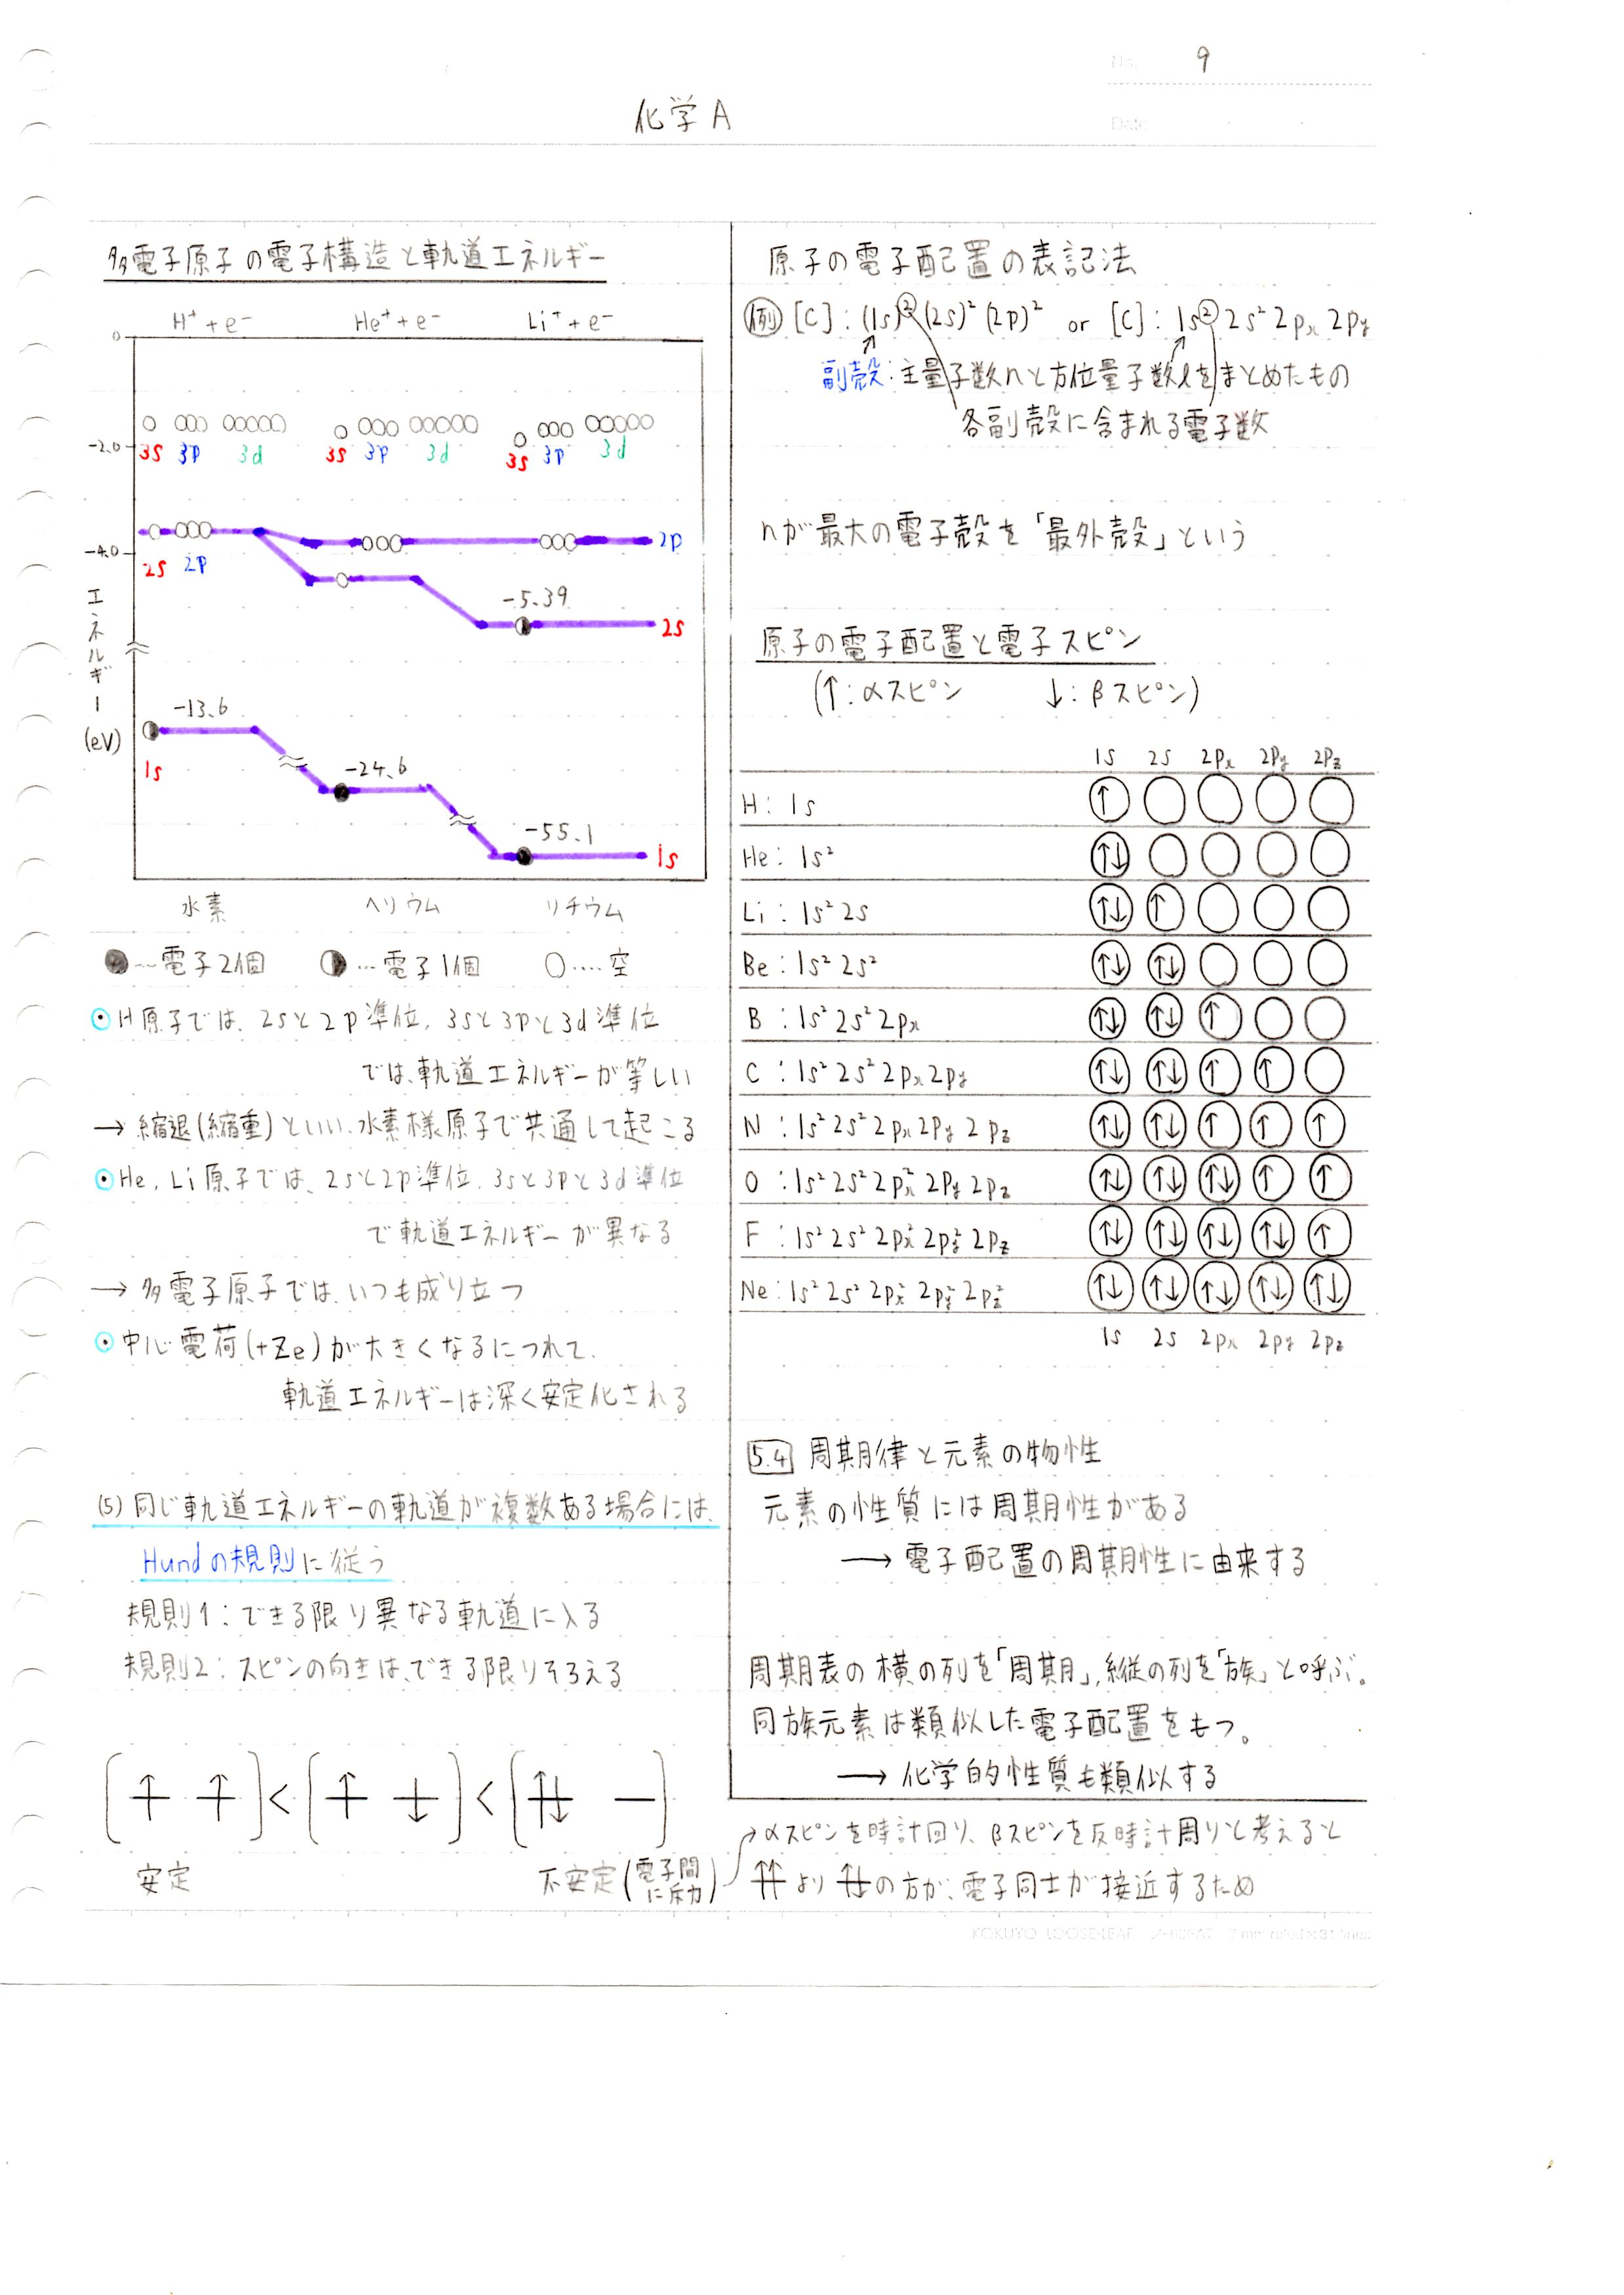 No. 9
化学A
Date
多電子原子の電子構造と軌道エネルギー
H⁺+e⁻ He⁺+e⁻ Li⁺+e⁻
0
-2.0
3s 3p 3d 3s 3p 3d 3s 3p 3d
-4.0
2s 2p
2p
-5.39
2s
エネルギー(eV)
-13.6
1s
-24.6
-55.1
1s
水素 ヘリウム リチウム
●…電子2個 ◐…電子1個 ○‥‥空
⊙H原子では、2sと2p準位、3sと3pと3d準位
では、軌道エネルギーが等しい
→縮退(縮重)といい、水素様原子で共通して起こる
⊙He, Li原子では、2sと2p準位、3sと3pと3d準位
で軌道エネルギーが異なる
→多電子原子では、いつも成り立つ
⊙中心電荷(+Ze)が大きくなるにつれて、
軌道エネルギーは深く安定化される
(5)同じ軌道エネルギーの軌道が複数ある場合には、
Hundの規則に従う
規則1:できる限り異なる軌道に入る
規則2:スピンの向きは、できる限りそろえる
(↑ ↑)<(↑ ↓)<(↑↓ —)
安定 不安定(電子間に斥力)
原子の電子配置の表記法
例 [C]:(1s)²(2s)²(2p)² or [C]:1s²2s²2pₓ2py
副殻:主量子数nと方位量子数lをまとめたもの
各副殻に含まれる電子数
nが最大の電子殻を「最外殻」という
原子の電子配置と電子スピン
(↑:αスピン ↓:βスピン)
1s 2s 2pₓ 2py 2pz
H:1s ↑
He:1s² ↑↓
Li:1s²2s ↑↓ ↑
Be:1s²2s² ↑↓ ↑↓
B:1s²2s²2pₓ ↑↓ ↑↓ ↑
C:1s²2s²2pₓ2py ↑↓ ↑↓ ↑ ↑
N:1s²2s²2pₓ2py2pz ↑↓ ↑↓ ↑ ↑ ↑
O:1s²2s²2pₓ²2py2pz ↑↓ ↑↓ ↑↓ ↑ ↑
F:1s²2s²2pₓ²2py²2pz ↑↓ ↑↓ ↑↓ ↑↓ ↑
Ne:1s²2s²2pₓ²2py²2pz² ↑↓ ↑↓ ↑↓ ↑↓ ↑↓
1s 2s 2pₓ 2py 2pz
5.4 周期律と元素の物性
元素の性質には周期性がある
→電子配置の周期性に由来する
周期表の横の列を「周期」,縦の列を「族」と呼ぶ。
同族元素は類似した電子配置をもつ。
→化学的性質も類似する
αスピンを時計回り、βスピンを反時計周りと考えると
↑↑より↑↓の方が、電子同士が接近するため
KOKUYO LOOSE-LEAF